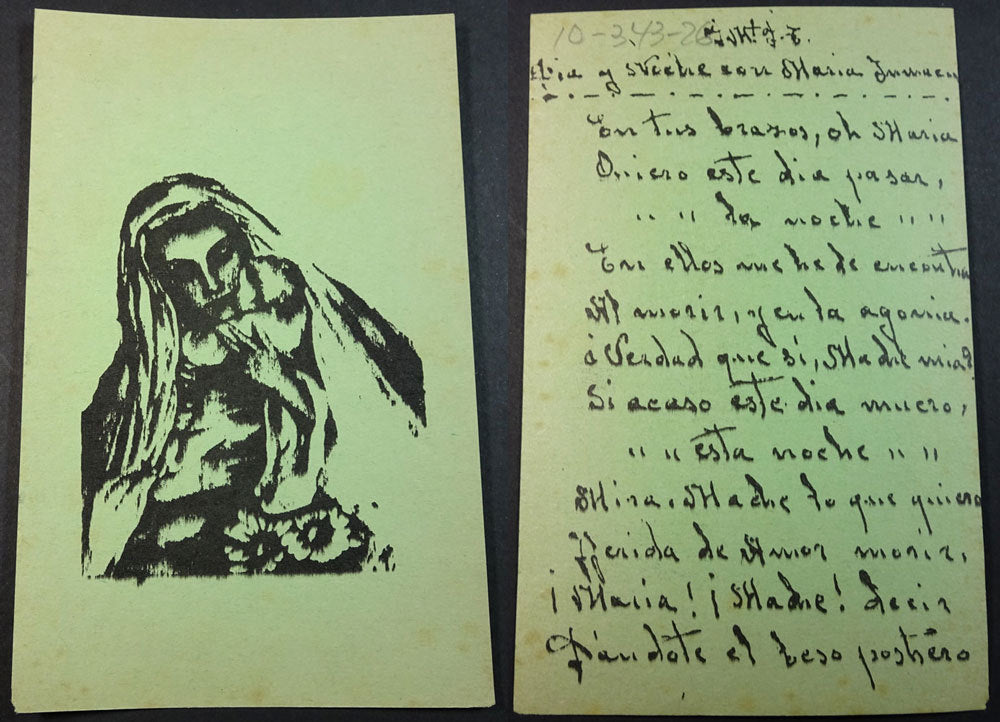 10-343-26
J. Mª. J. T.
Dia y Noche con Maria Inmacu
En tus brazos, oh Maria
Quiero este dia pasar,
" " la noche " "
En ellos me he de encontrar
Al morir, y en la agonia.
¿Verdad que si, Madre mia?
Si acaso este dia muero,
" " esta noche " "
Mira, Madre lo que quiero
Herida de Amor morir,
¡Maria! ¡Madre! decir
Dándote el beso postrero